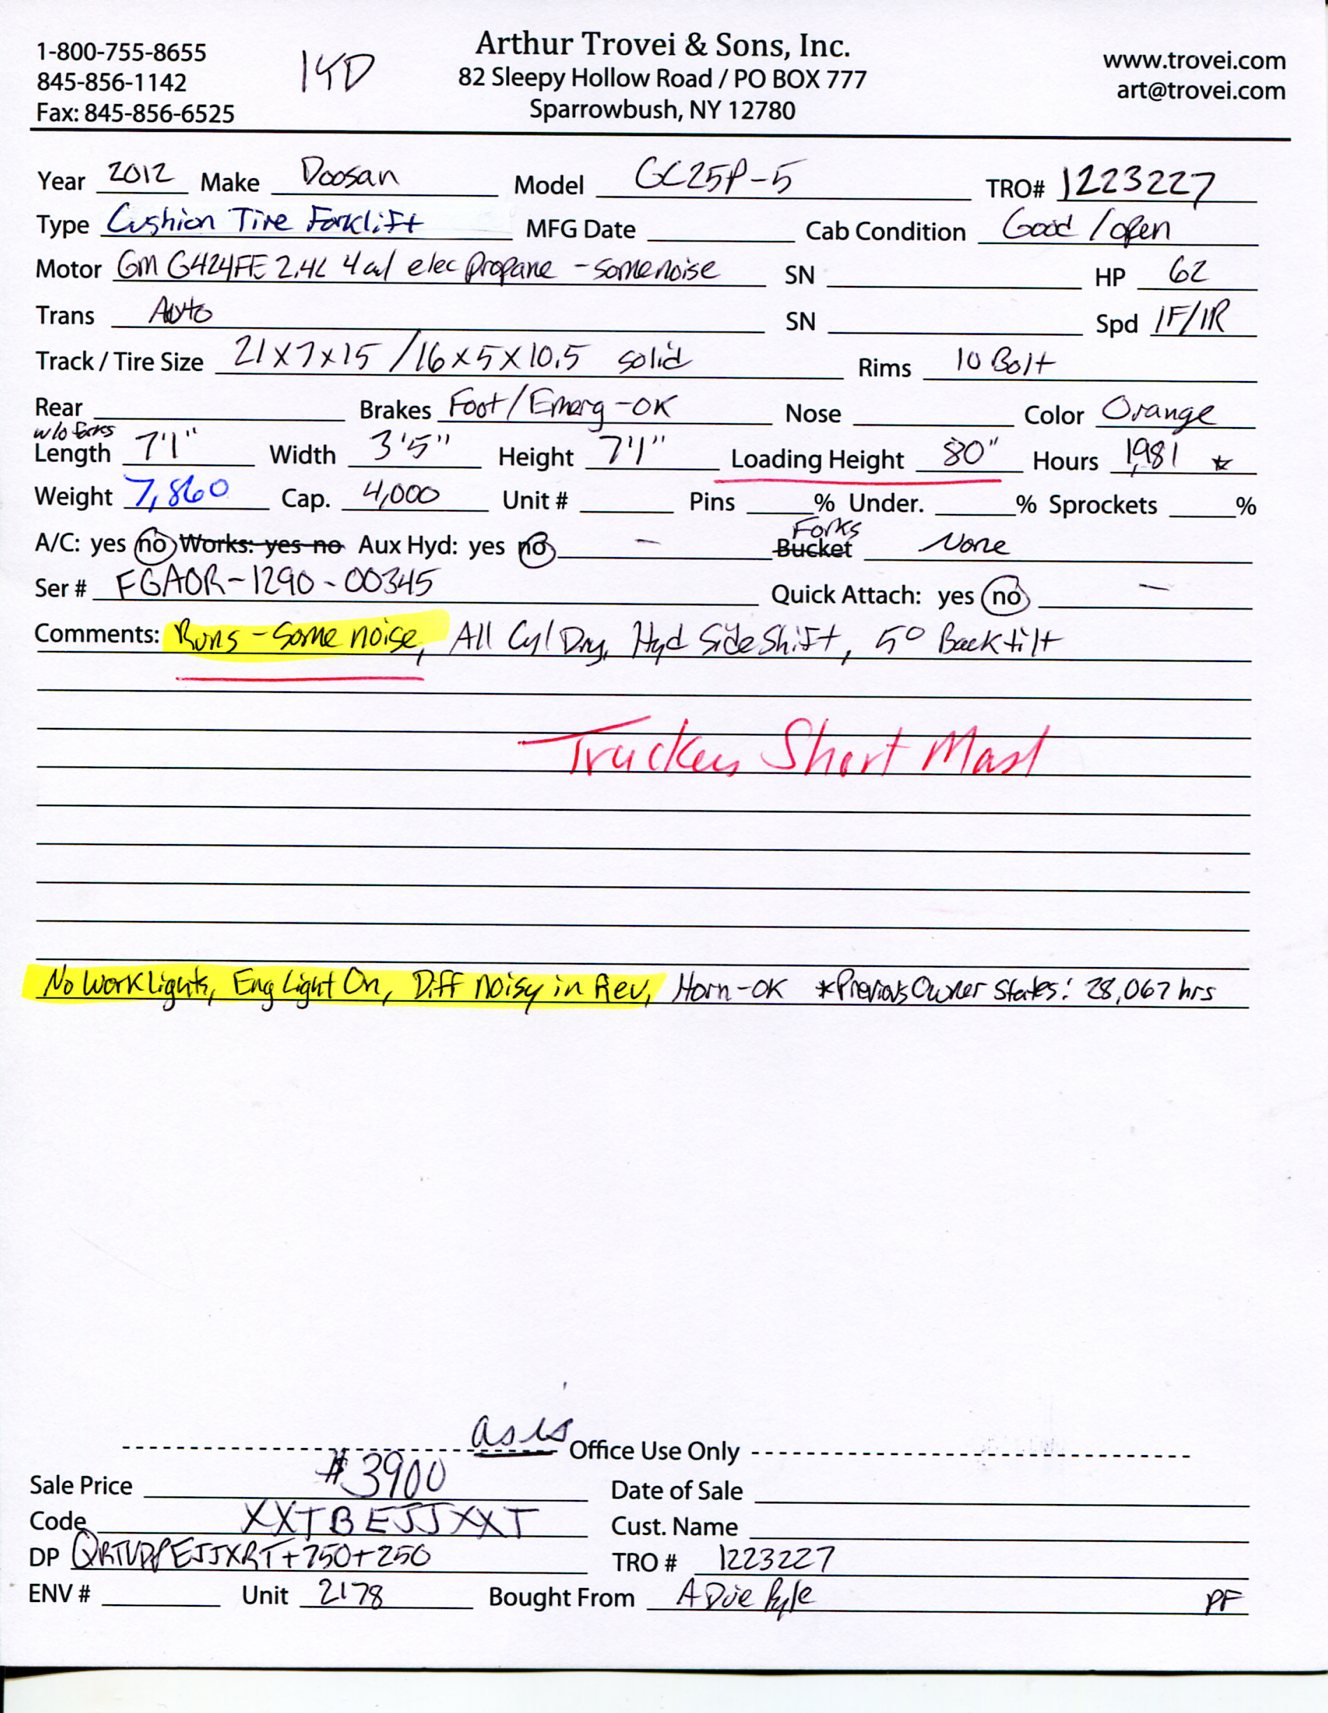 1-800-755-8655
845-856-1142
Fax: 845-856-6525
Arthur Trovei & Sons, Inc.
82 Sleepy Hollow Road / PO BOX 777
Sparrowbush, NY 12780
www.trovei.com
art@trovei.com
Year 2012 Make Doosan Model GC25P-5 TRO# 1223227
Type Cushion Tire Forklift MFG Date Cab Condition Good / open
Motor GM G424FE 2.4L 4cyl elec propane - some noise SN HP 62
Trans Auto SN Spd 1F/1R
Track / Tire Size 21x7x15 / 16x5x10.5 solid Rims 10 Bolt
Rear Brakes Foot/Emerg-OK Nose Color Orange
w/o forks
Length 7'1" Width 3'5" Height 7'1" Loading Height 80" Hours 1,981 *
Weight 7,860 Cap. 4,000 Unit # Pins % Under. % Sprockets %
A/C: yes no Works: yes no Aux Hyd: yes no - Forks Bucket None
Ser # FGA0R-1290-00345 Quick Attach: yes no -
Comments: Runs - Some noise, All Cyl Dry, Hyd Side Shift, 5° Back tilt
Truckers Short Mast
No Work Lights, Eng Light On, Diff noisy in Rev, Horn-OK *Previous Owner States: 28,067 hrs
as is
Office Use Only
Sale Price $3900 Date of Sale
Code XXTBEJJXXT Cust. Name
DP +750+250 TRO # 1223227
ENV # Unit 2178 Bought From A Duie Pyle PF